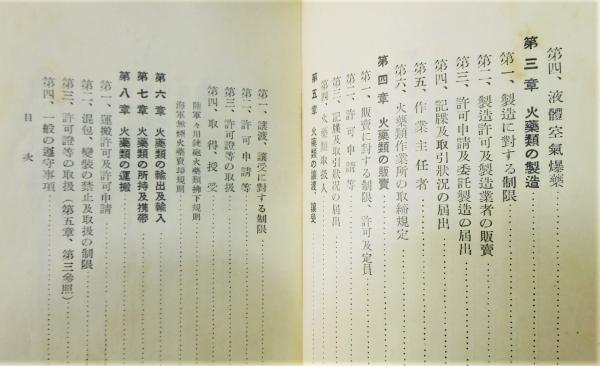 第四、液體空氣爆藥
第三章 火藥類の製造
第一、製造に對する制限
第二、製造許可及製造業者の販賣
第三、許可申請及委託製造の屆出
第四、記牒及取引狀況の屆出
第五、作業主任者
第六、火藥類作業所の取締規定
第四章 火藥類の販賣
第一、販賣に對する制限、許可及定員
第二、許可申請等
第三、記牒及取引狀況の屆出
第四、火藥類取扱人
第五章 火藥類の讓渡、讓受
第一、讓渡、讓受に對する制限
第二、許可申請等
第三、許可證等の取扱
第四、取得授受
陸軍々用銃砲火藥類拂下規則
海軍無煙火藥賣却規則
第六章 火藥類の輸出及輸入
第七章 火藥類の所持及携帶
第八章 火藥類の運搬
第一、運搬許可及許可申請
第二、混包、變裝の禁止及取扱の制限
第三、許可證等の取扱(第五章、第三參照)
第四、一般の遵守事項
目次